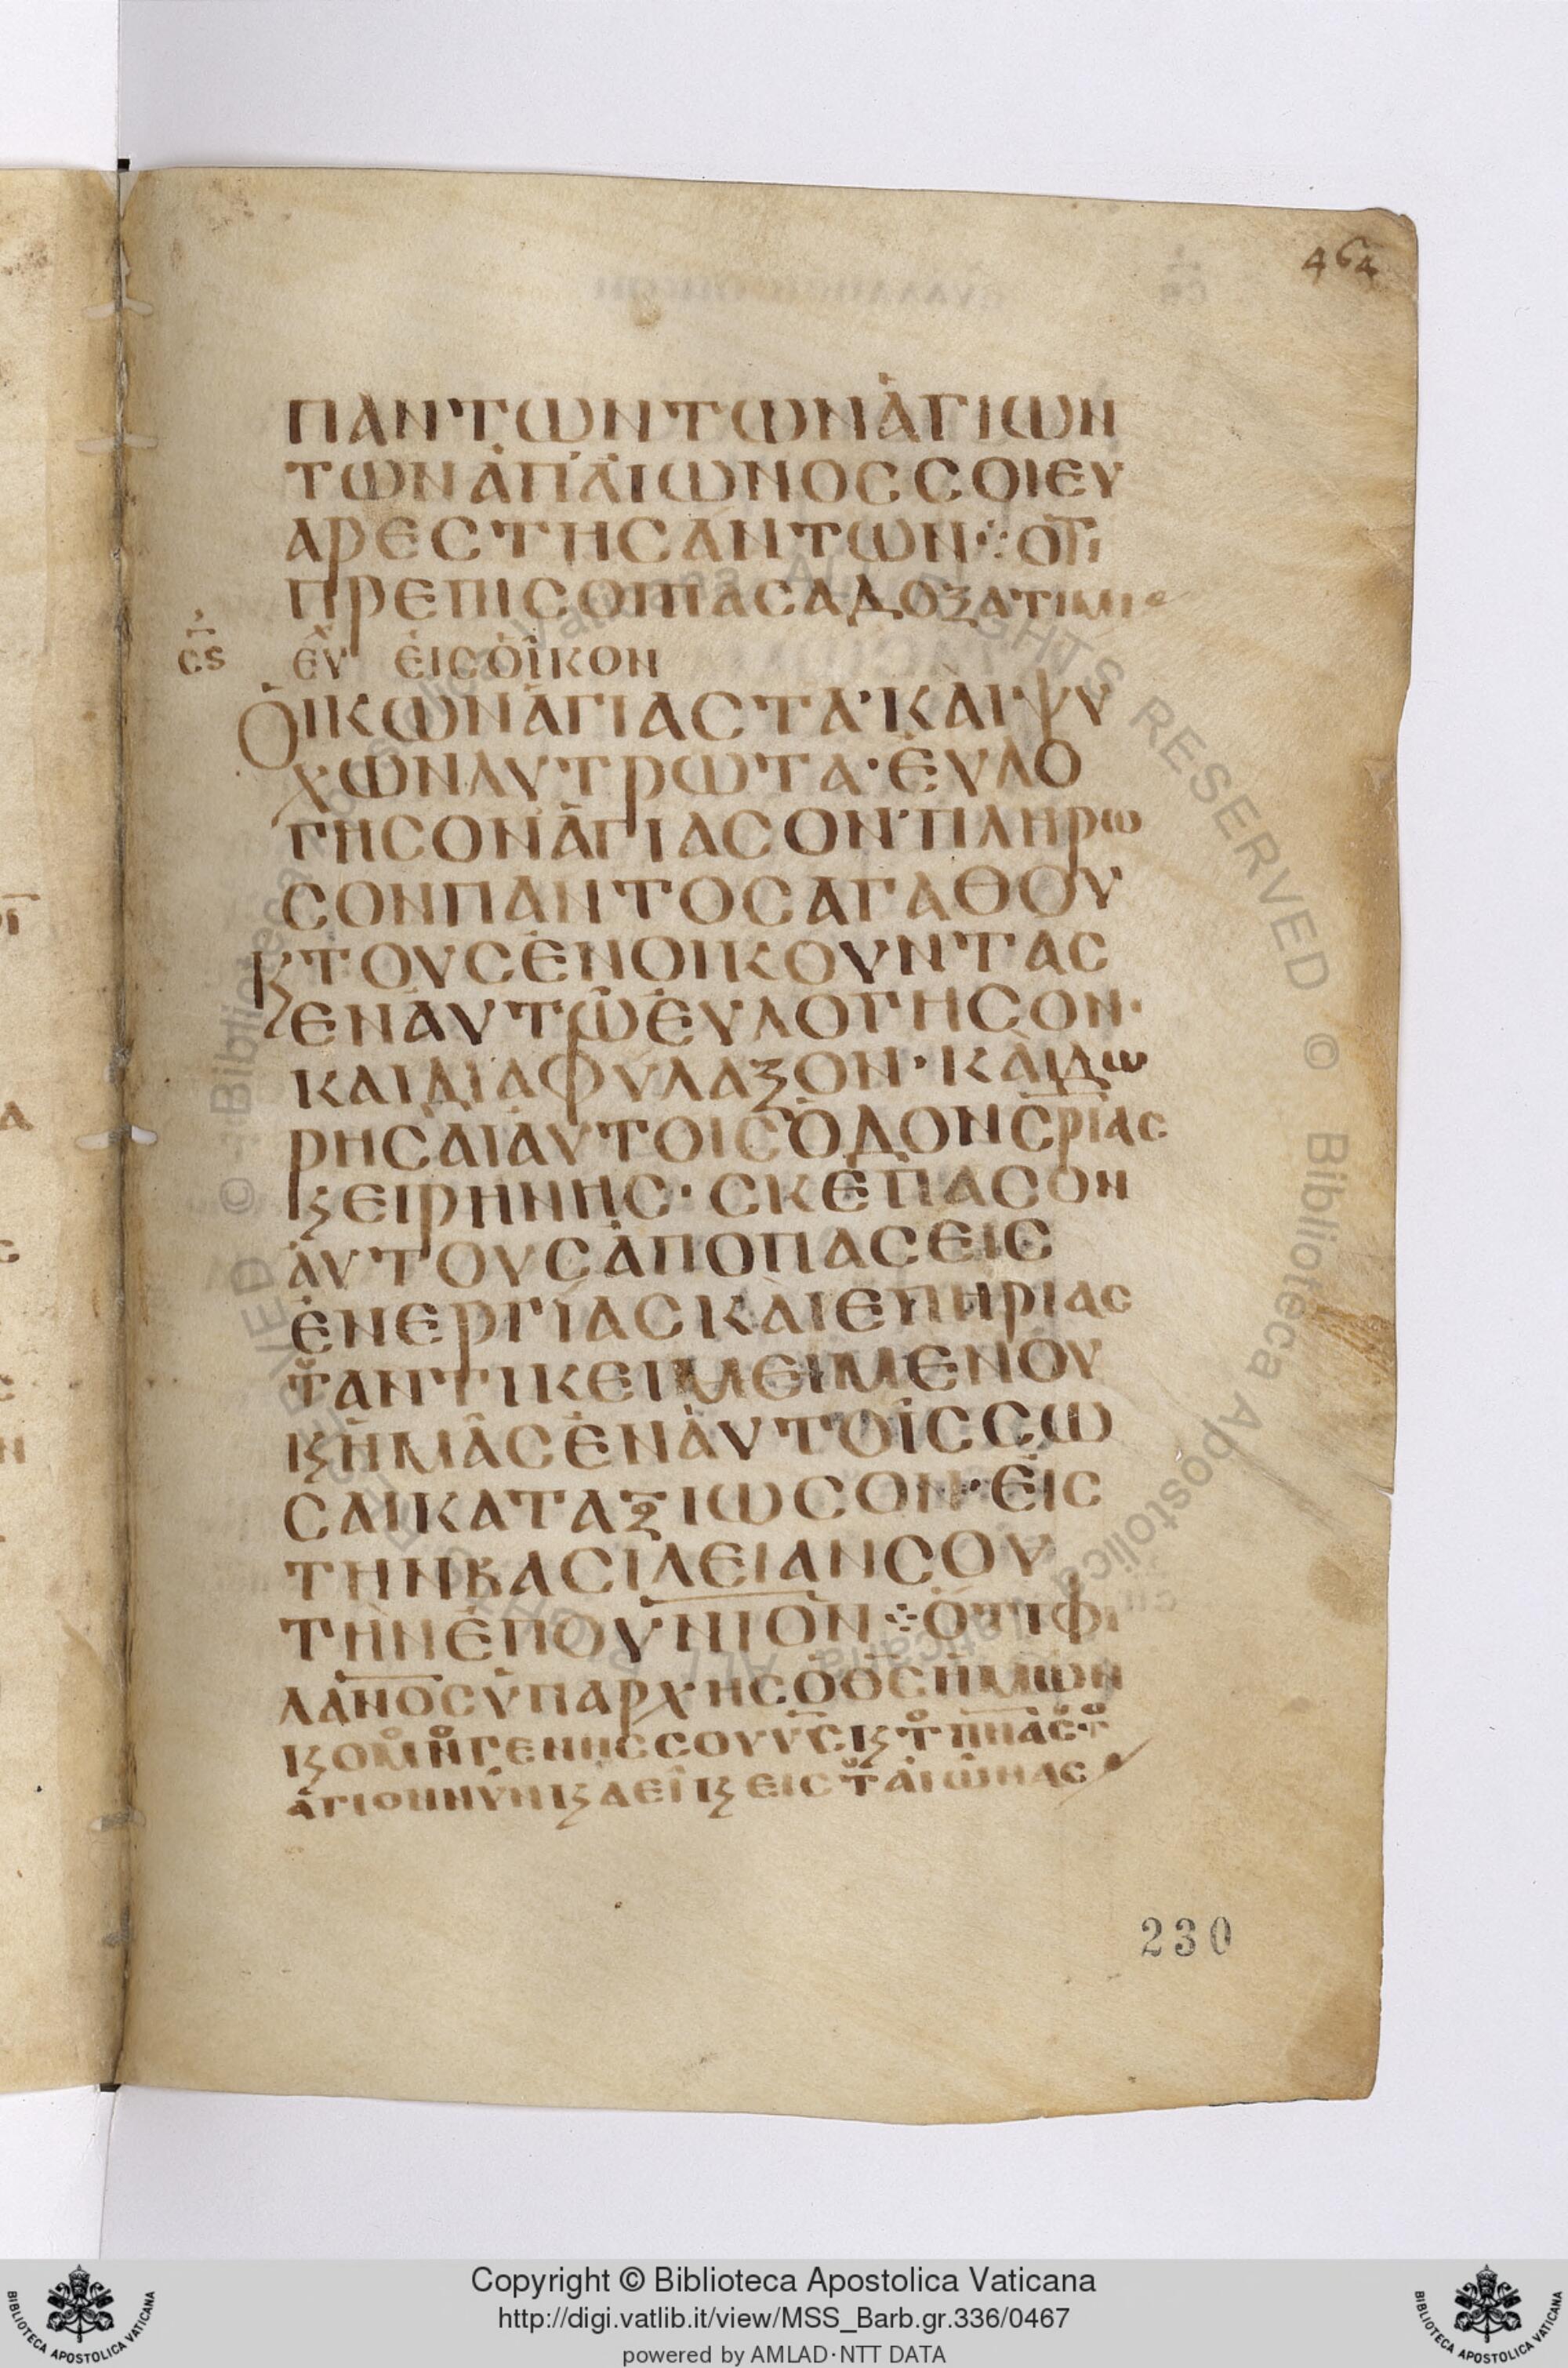 464
ΠΑΝΤΩΝΤΩΝἉΓΙΩΝ
ΤΩΝἈΠ'ΑἸΩΝΟCCΟΙΕΥ
ΑΡΕCΤΗCΆΝΤΩΝ·:ΟΤΙ
ΠΡΕΠΙCΟΙΠΑCΑΔΟΞΑΤΙΜΙ
CS ΕΥΧ ΕΙCΟΙΚΟΝ
ὉΙΚΩΝἉΓΙΑCΤᾺ·ΚᾺΙΨΥ
ΧΩΝΛΥΤΡΩΤΑ·ἘΥΛΟ
ΓΗCΟΝἉΓΙΑCΟΝ·ΠΛΗΡΩ
CΟΝΠΑΝΤΟCΑΓΑΘΟΥ
ϏΤΟΥCἘΝΟΙΚΟΥΝΤΑC
ΕΝἈΥΤΩ͂ἘΥΛΟΓΗCΟΝ·
ΚΑΙΔΙΑΦΥΛΑΞΟΝ·ΚᾺΙΔΩ
ΡΗCΑΙἈΥΤΟΙCὉΔΟΝC̅Ρ̅Ι̅ΑC
ϏΕΙΡΗΝΗC·CΚΕΠΑCΟΝ
ἈΥΤΟΥCἈΠΟΠΑCΕΙC
ἘΝΕΡΓΊΑCΚᾺΙΕΠΗΡΙΑC
ΤΑΝΤΙΚΕΙΜΕΙΜΕΝΟΥ
ϏἩΜΑ͂CἘΝἈΥΤΟΙCCΩ
CΑΙΚΑΤΑΞΙΩCΟΝ·ΕἸC
ΤΗΝΒΑCΙΛΕΙΑΝCΟΥ
ΤῊΝἘΠΟΥΝΙΟΝ·:ὍΤΙΦΙ
ΛΑΝΟCὙΠΑΡΧΗCὉΘ̅C̅ἩΜΩΝ
ϏΟΜΝΓΕΝΗCCΟΥΥ̅C̅ϏΤΠΠΑCΤ
ΑΓΙΟΝΝΥ͂ΝϏΑΕῚϏΕΙCΤΑΙΩΝΑC
230
Copyright © Biblioteca Apostolica Vaticana
http://digi.vatlib.it/view/MSS_Barb.gr.336/0467
powered by AMLAD·NTT DATA
BIBLIOTECA APOSTOLICA VATICANA
BIBLIOTECA APOSTOLICA VATICANA